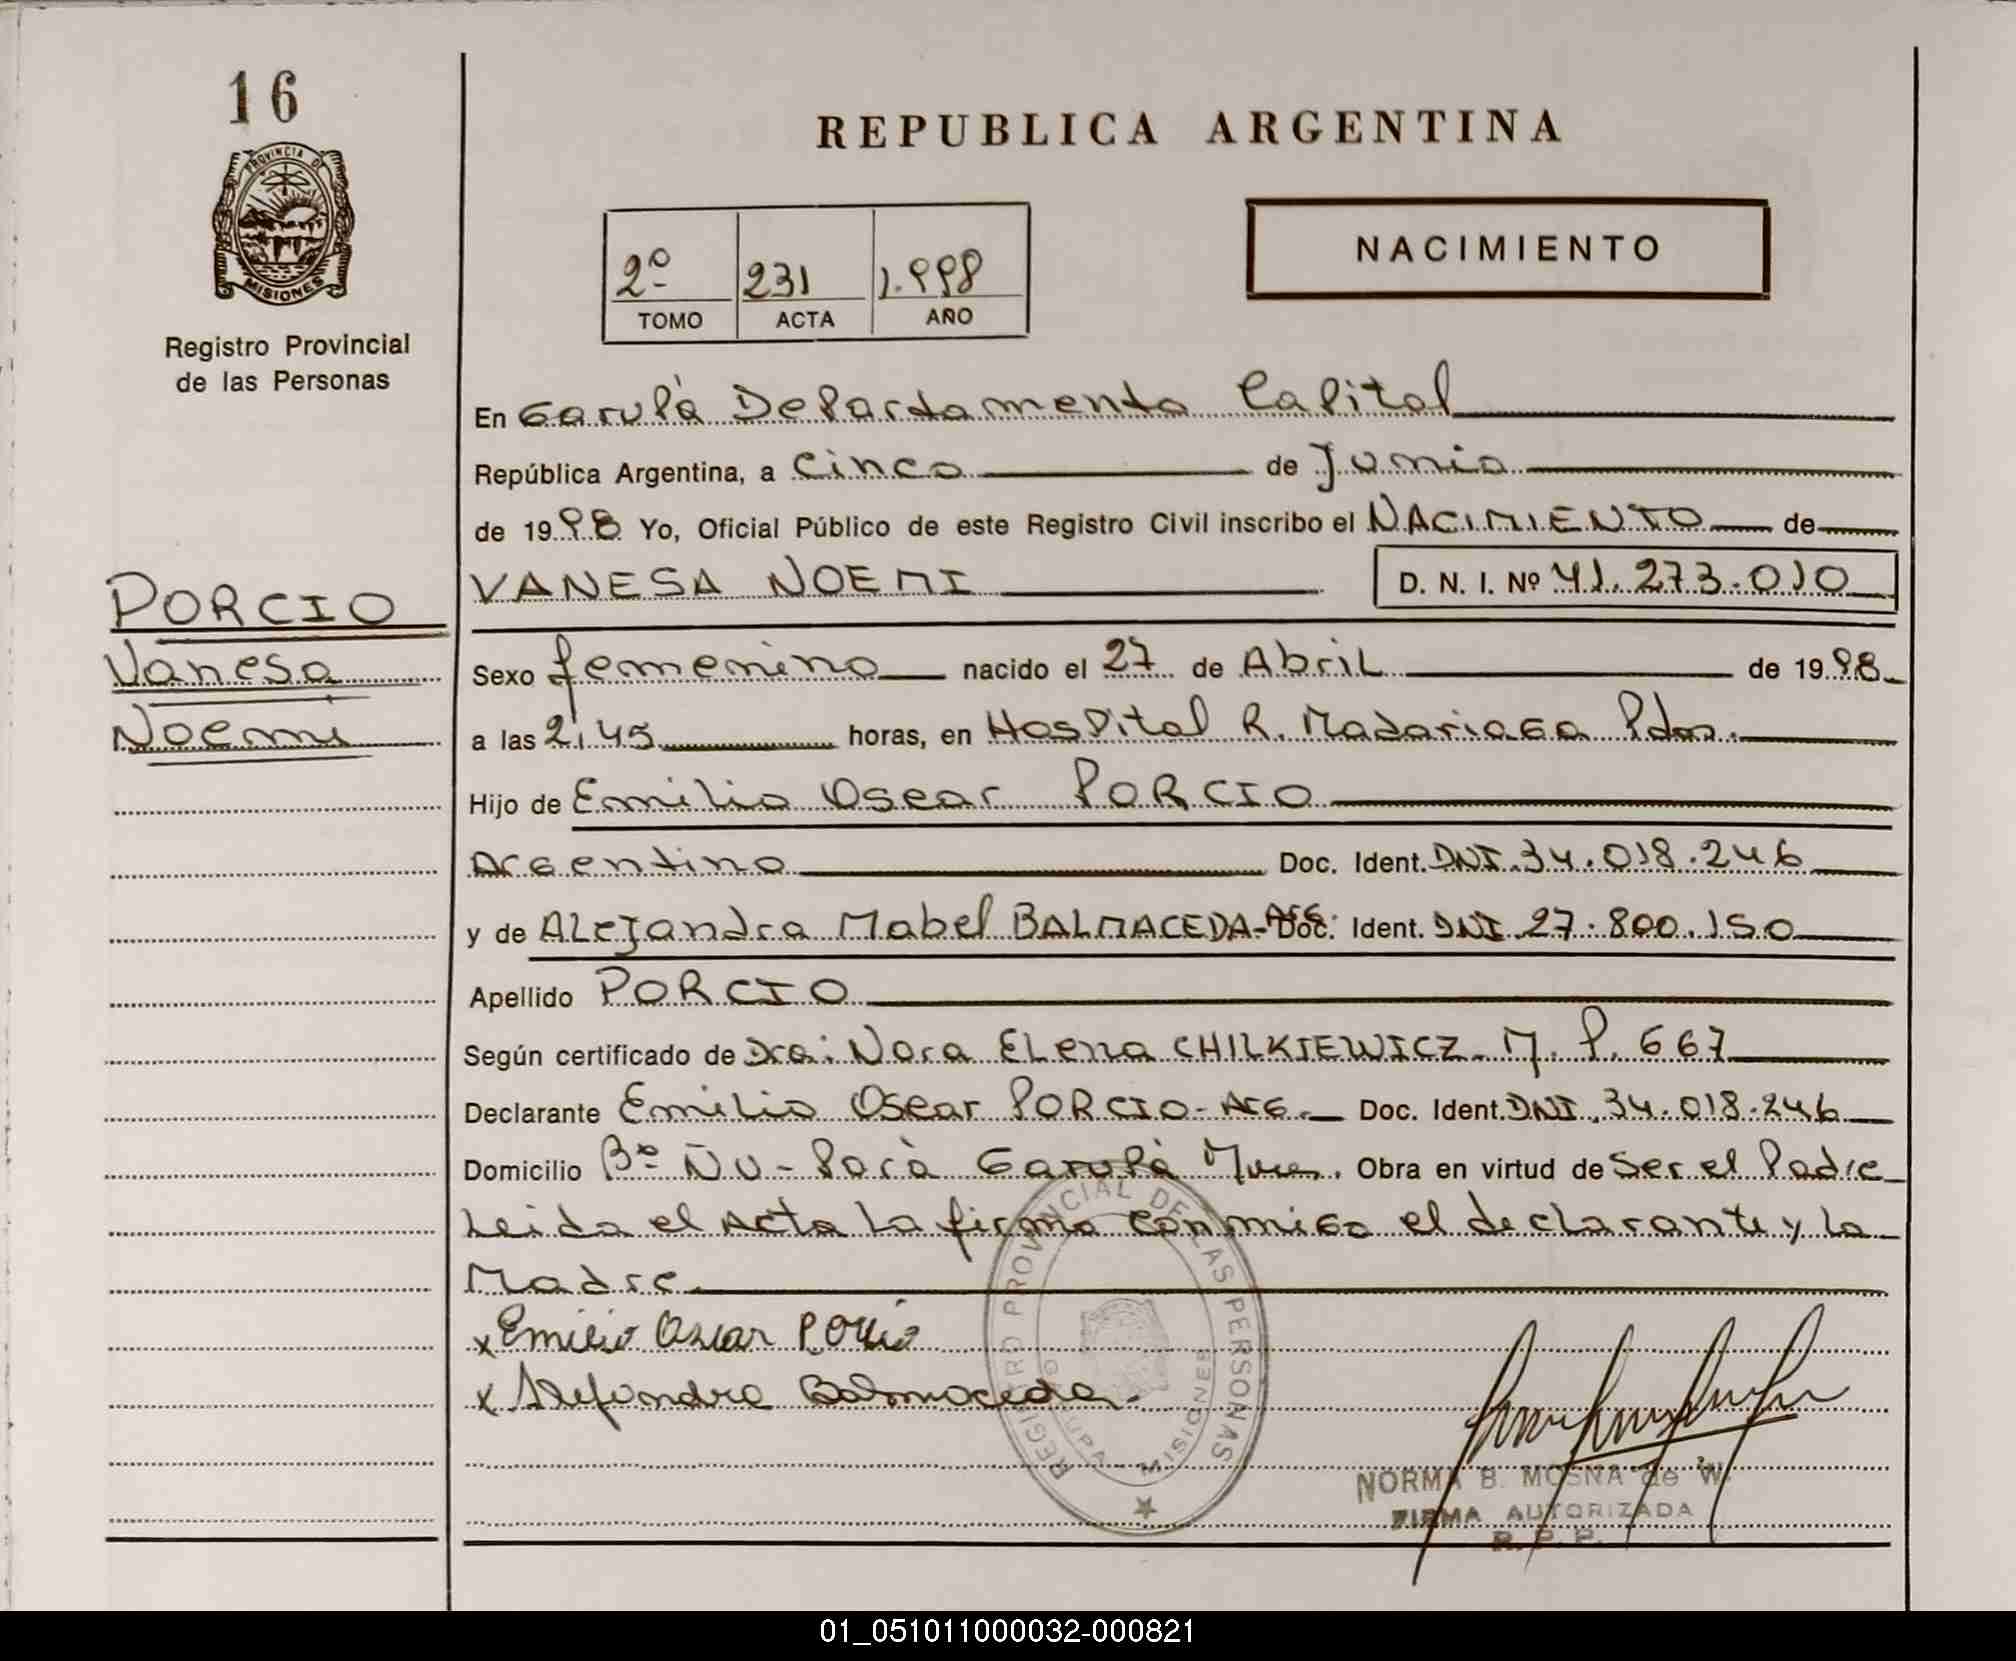 16
PROVINCIA DE
MISIONES
Registro Provincial
de las Personas
REPUBLICA ARGENTINA
2º 231 1.998
TOMO ACTA AÑO
NACIMIENTO
En Garupà Departamento Capital
República Argentina, a Cinco de Junio
de 1998 Yo, Oficial Público de este Registro Civil inscribo el NACIMIENTO de
VANESA NOEMI D. N. I. Nº 41.273.010
PORCIO
Vanesa
Noemi
Sexo femenino nacido el 27 de Abril de 1998
a las 2,45 horas, en Hospital R. Madariaga Pdas.
Hijo de Emilio Oscar PORCIO
Argentino Doc. Ident. DNI.34.018.246
y de Alejandra Mabel BALMACEDA-Arg. Doc. Ident. DNI.27.800.150
Apellido PORCIO
Según certificado de Dra. Nora Elena CHILKIEWICZ. M. P. 667
Declarante Emilio Oscar PORCIO- Arg. Doc. Ident. DNI. 34.018.246
Domicilio Bº Ñu-Porà Garupà Mnes. Obra en virtud de Ser el Padre
Leida el Acta La firma conmigo el declarante y la
Madre
x Emilio Oscar Porcio
x Alejandra Balmaceda.
REGISTRO PROVINCIAL DE LAS PERSONAS
GARUPA - MISIONES
NORMA B. MOSNA de W.
FIRMA AUTORIZADA
R. P. P.
01_051011000032-000821